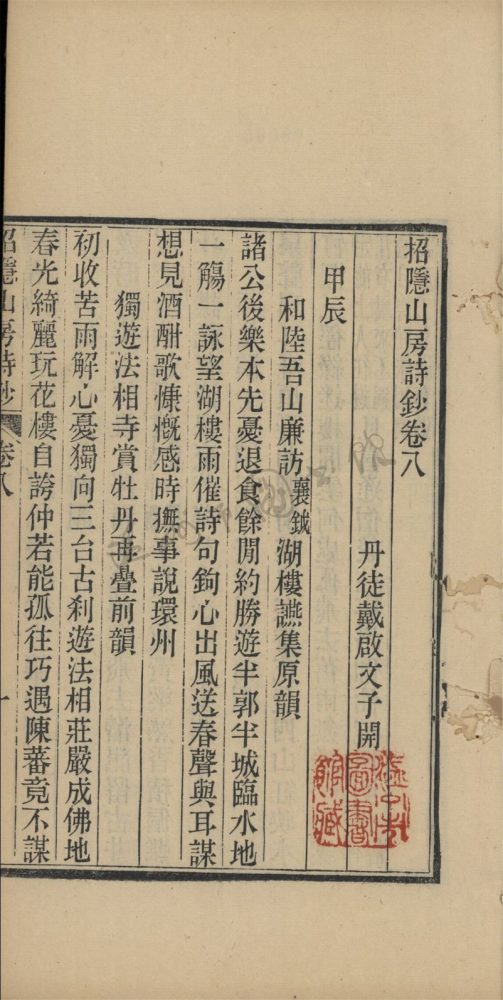 招隱山房詩鈔卷八
丹徒戴啟文子開
甲辰
和陸吾山廉訪襄鉞湖樓讌集原韻
諸公後樂本先憂退食餘閒約勝遊半郭半城臨水地
一觴一詠望湖樓雨催詩句鉤心出風送春聲與耳謀
想見酒酣歌慷慨感時撫事說環州
獨遊法相寺賞牡丹再疊前韻
初收苦雨解心憂獨向三台古刹遊法相莊嚴成佛地
春光綺麗玩花樓自誇仲若能孤往巧遇陳蕃竟不謀
招隱山房詩鈔 卷八 一
圖書
館藏